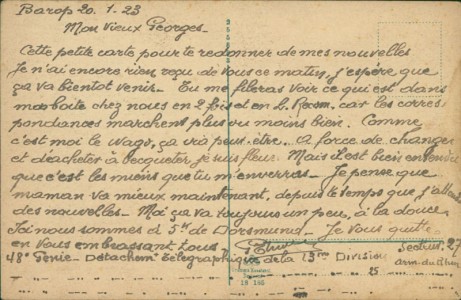 Barop 20. 1. 23
Mon vieux Georges-
Cette petite carte pour te redonner de mes nouvelles
Je n'ai encore rien reçu de vous ce matin, j'espère que
ça va bientot venir. Tu me fileras voir ce qui est dans
ma boite chez nous en 2 fois et en L. Recom. car les corres
pondances marchent plus ou moins bien. Comme
c'est moi le wago, ça via peut-être. A force de changer
et d'acheter à becqueter, je suis fleur. Mais il est bien entendu
que c'est les miens que tu m'enverras. Je pense que
maman va mieux maintenant, depuis le temps que j'attends
des nouvelles. Moi ça va toujours un peu, à la douce
Ici nous sommes à 5 K de Dorsmund. Je vous quitte
en vous embrassant tous. Secteur. 27
48e Genie - Detachem. Telegraphique de la 13me Division